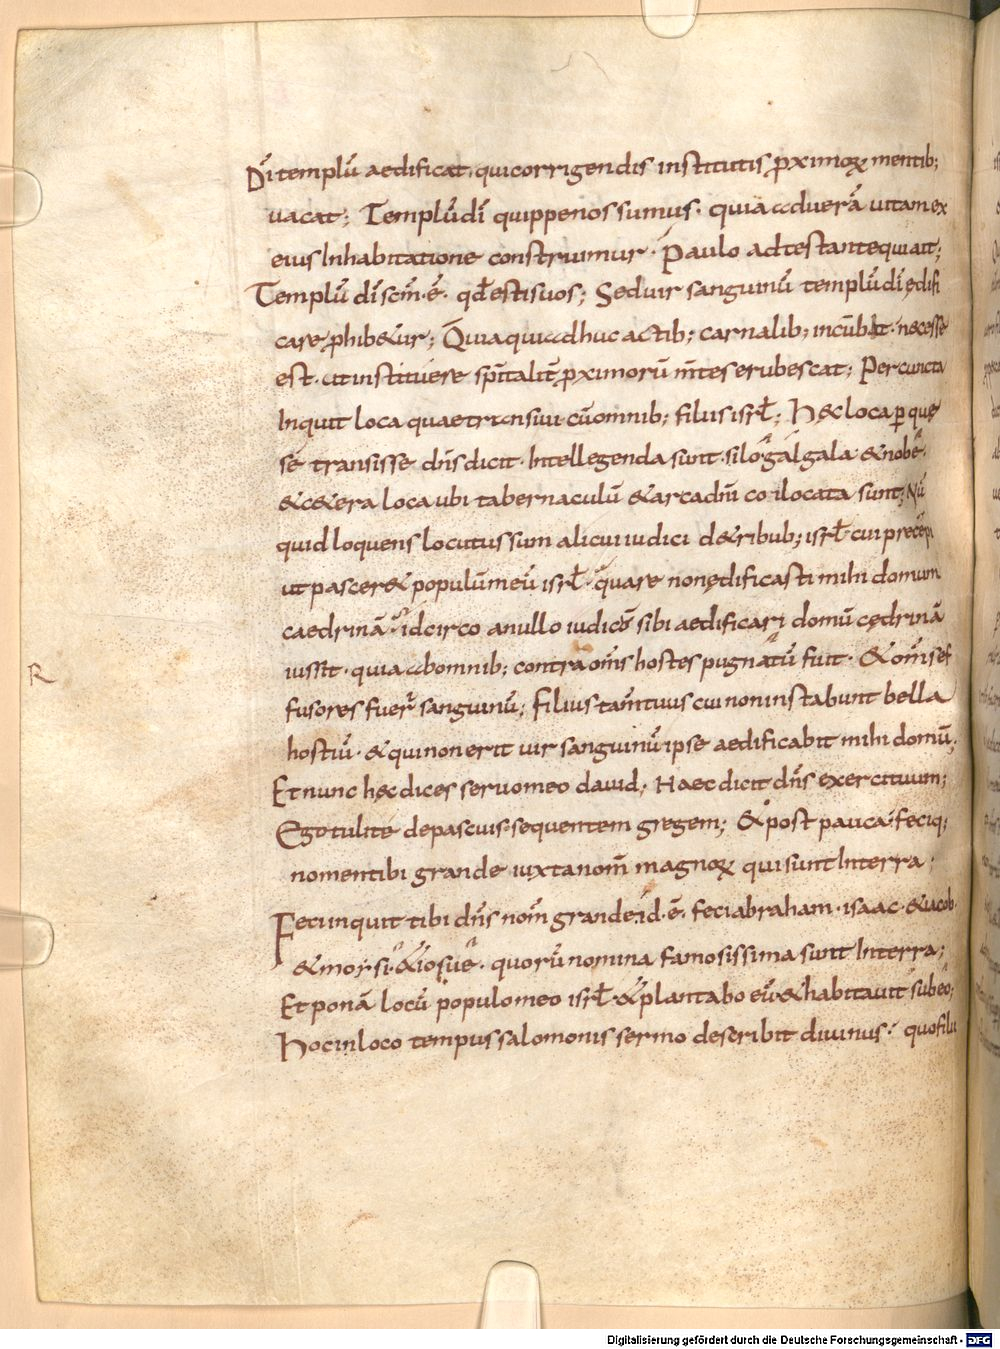 Dī templū aedificat, qui corrigendis institutis ꝓximoꝝ mentib;
uacat; Templū dī quippe nos sumus· quia ad uerā uitam ex
eius Inhabitatione construimur· Paulo adtestante qui ait;
Templū dī scm̄ ē· qđ estis uos; Sed uir sanguinū templū dī ędifi
care ꝓhib&ur; Quia qui adhuc actib; carnalib; incūbit· necesse
est· ut instituere sp̄italit̄ ꝓximorū m̄tes erubescat; Per cuncta
Inquit loca quae transiui cū omnib; filiis isrł; Hęc loca ꝑ quę
sē transisse dn̄s dicit· Intellegenda sunt· silo· galgala· & nobe·
& c&era loca ubi tabernaculū & arca dn̄i collocata sunt; Nū
quid loquens locutus sum alicui iudici d& ribub; isrł· cui precepi
ut pascer& populū meū isrł· quare non ędificasti mihi domum
caedrinā· idcirco a nullo iudicū sibi aedificari domū cędrinā
iussit· quia ab omnib; contra om̄s hostes pugnatū fuit· & om̄s ef
R
fusores fuer̄ sanguinū; Filius tam̄ tuus cui non instabunt bella
hostiū· & qui non erit uir sanguinū ipse aedificabit mihi domū;
Et nunc hęc dices seruo meo dauid; Haec dicit dn̄s exercituum;
Ego tuli te de pascuis sequentem gregem; & post pauca· feciq;
nomen tibi grande iuxta nom̄ magnoꝝ qui sunt In terra;
Feci inquit tibi dn̄s nom̄ grande· id· ē· feci abraham· isaac· & iacob·
& moysi· & iosue· quorū nomina famosissima sunt In terra;
Et ponā locū populo meo isrł & plantabo eū & habitauit sub eo;
Hoc in loco tempus salomonis sermo describit diuinus· quo filii
Digitalisierung gefördert durch die Deutsche Forschungsgemeinschaft - DFG